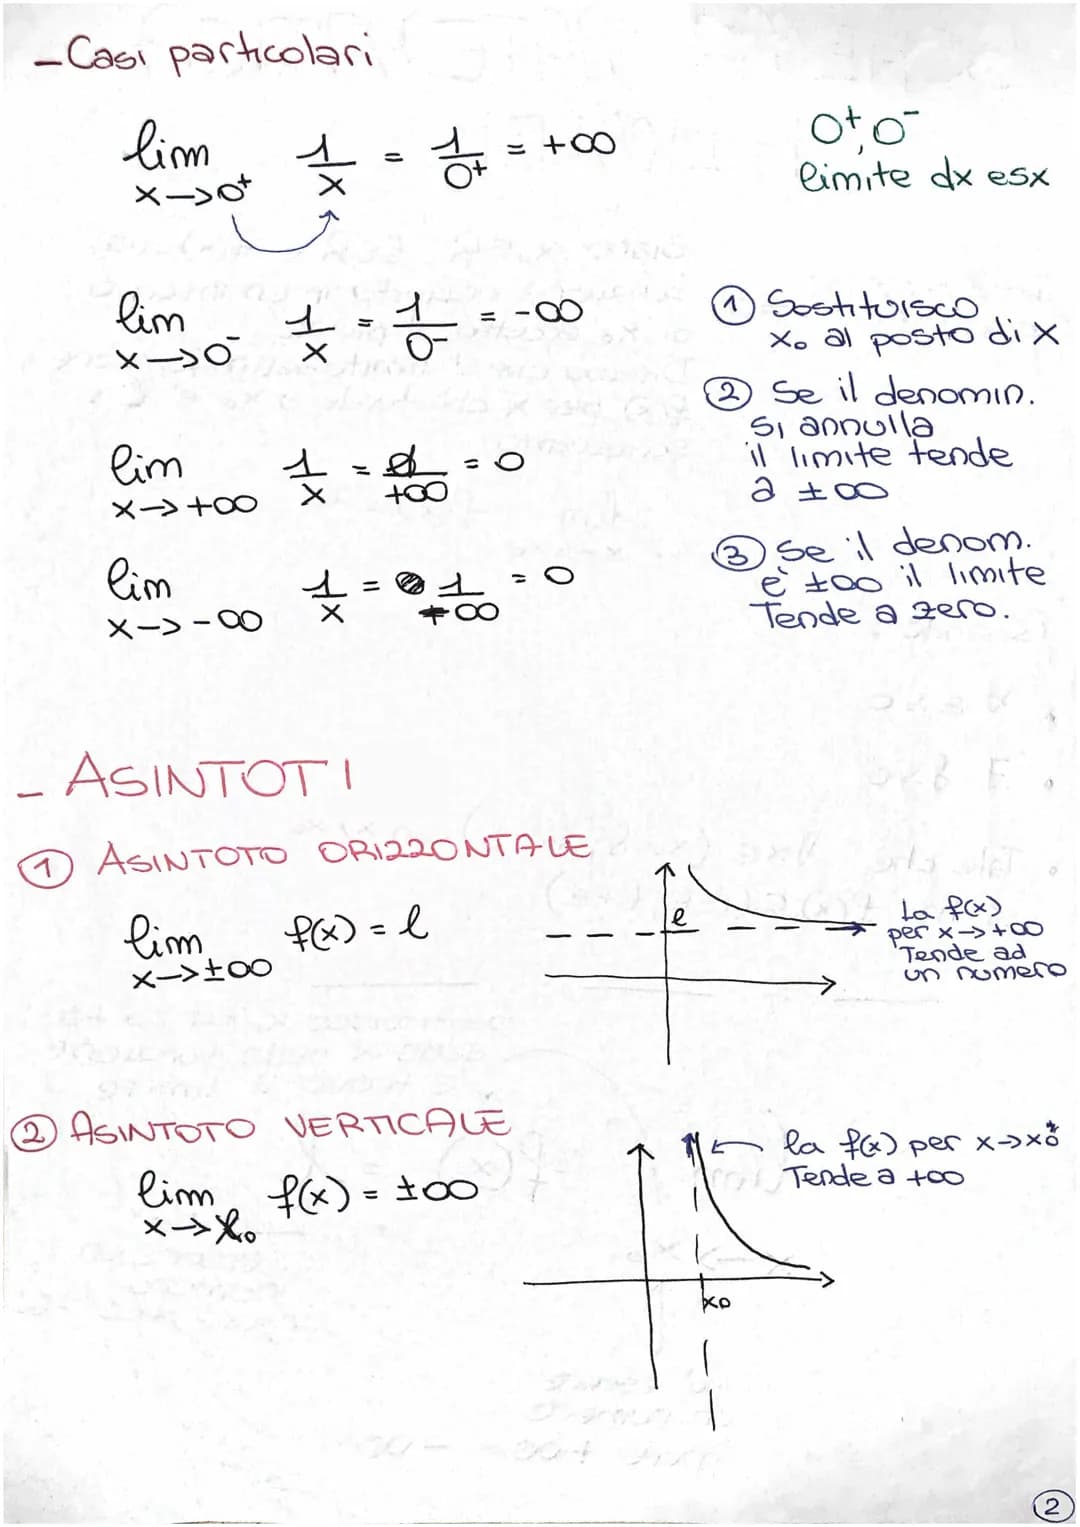 - Casi particolari
lim x->0⁺ 1/x = 1/0⁺ = +∞
0⁺, 0⁻
limite dx e sx
lim x->0⁻ 1/x = 1/0⁻ = -∞
lim x->+∞ 1/x = 1/+∞ = 0
lim x->-∞ 1/x = 1/-∞ = 0
① Sostituisco
x₀ al posto di x
② Se il denomin.
si annulla
il limite tende
a ±∞
③ Se il denom.
è ±∞ il limite
Tende a zero.
- ASINTOTI
① ASINTOTO ORIZZONTALE
lim x->±∞ f(x) = l
l
La f(x)
per x->+∞
Tende ad
un numero
② ASINTOTO VERTICALE
lim x->x₀ f(x) = ±∞
la f(x) per x->x₀⁺
Tende a +∞
x₀
②